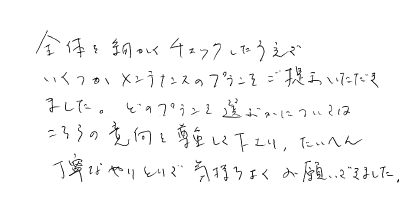 全体を細かくチェックしたうえで
いくつかメンテナンスのプランをご提示いただき
ました。どのプランを選ぶかについては
こちらの意向を尊重して下さり、たいへん
丁寧なやりとりで気持ちよくお願いできました。